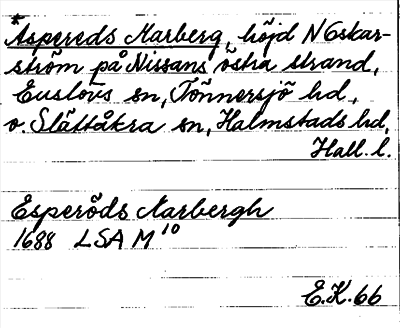 *Aspereds Karberg, höjd N Oskar-
ström på Nissans östra strand,
Enslövs sn, Tönnersjö hd,
o. Slättåkra sn, Halmstads hd,
Hall. l.
Esperöds Karbergh
1688 LSA M 10
E.K. 66